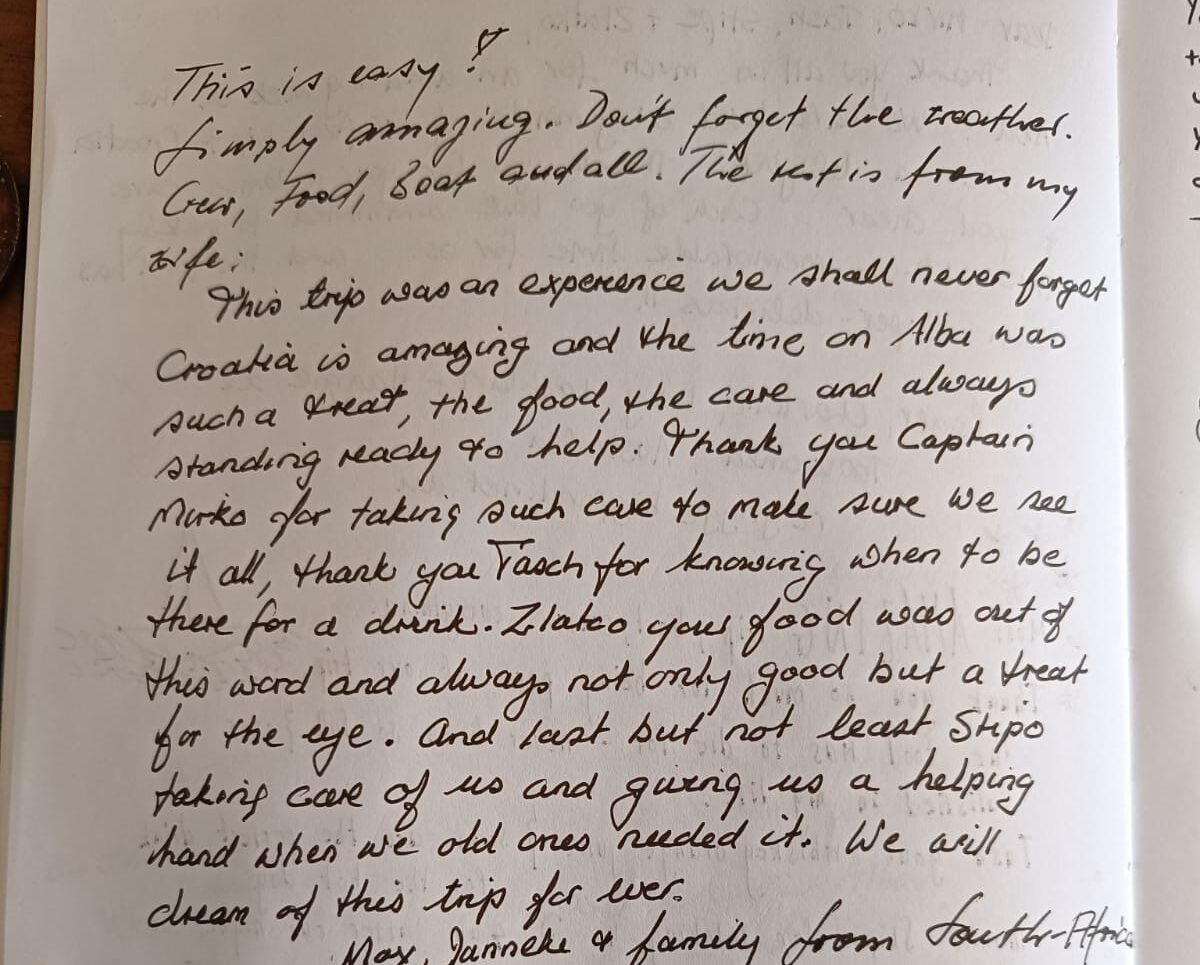 This is easy!
Simply amazing. Don't forget the weather.
Crew, Food, Boat and all. The rest is from my
wife:
This trip was an experence we shall never forget
Croatia is amazing and the time on Alba was
such a treat, the food, the care and always
standing ready to help. Thank you Captain
Mirko for taking such care to make sure we see
it all, thank you Tasch for knowing when to be
there for a drink. Zlatco your food was out of
this word and always not only good but a treat
for the eye. And last but not least Stipo
taking care of us and giving us a helping
hand when we old ones needed it. We will
dream of this trip for ever.
Max, Janneke & family from South-Africa